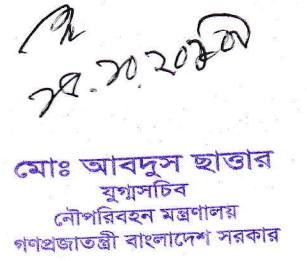 মোঃ আবদুস ছাত্তার
যুগ্মসচিব
নৌপরিবহন মন্ত্রণালয়
গণপ্রজাতন্ত্রী বাংলাদেশ সরকার